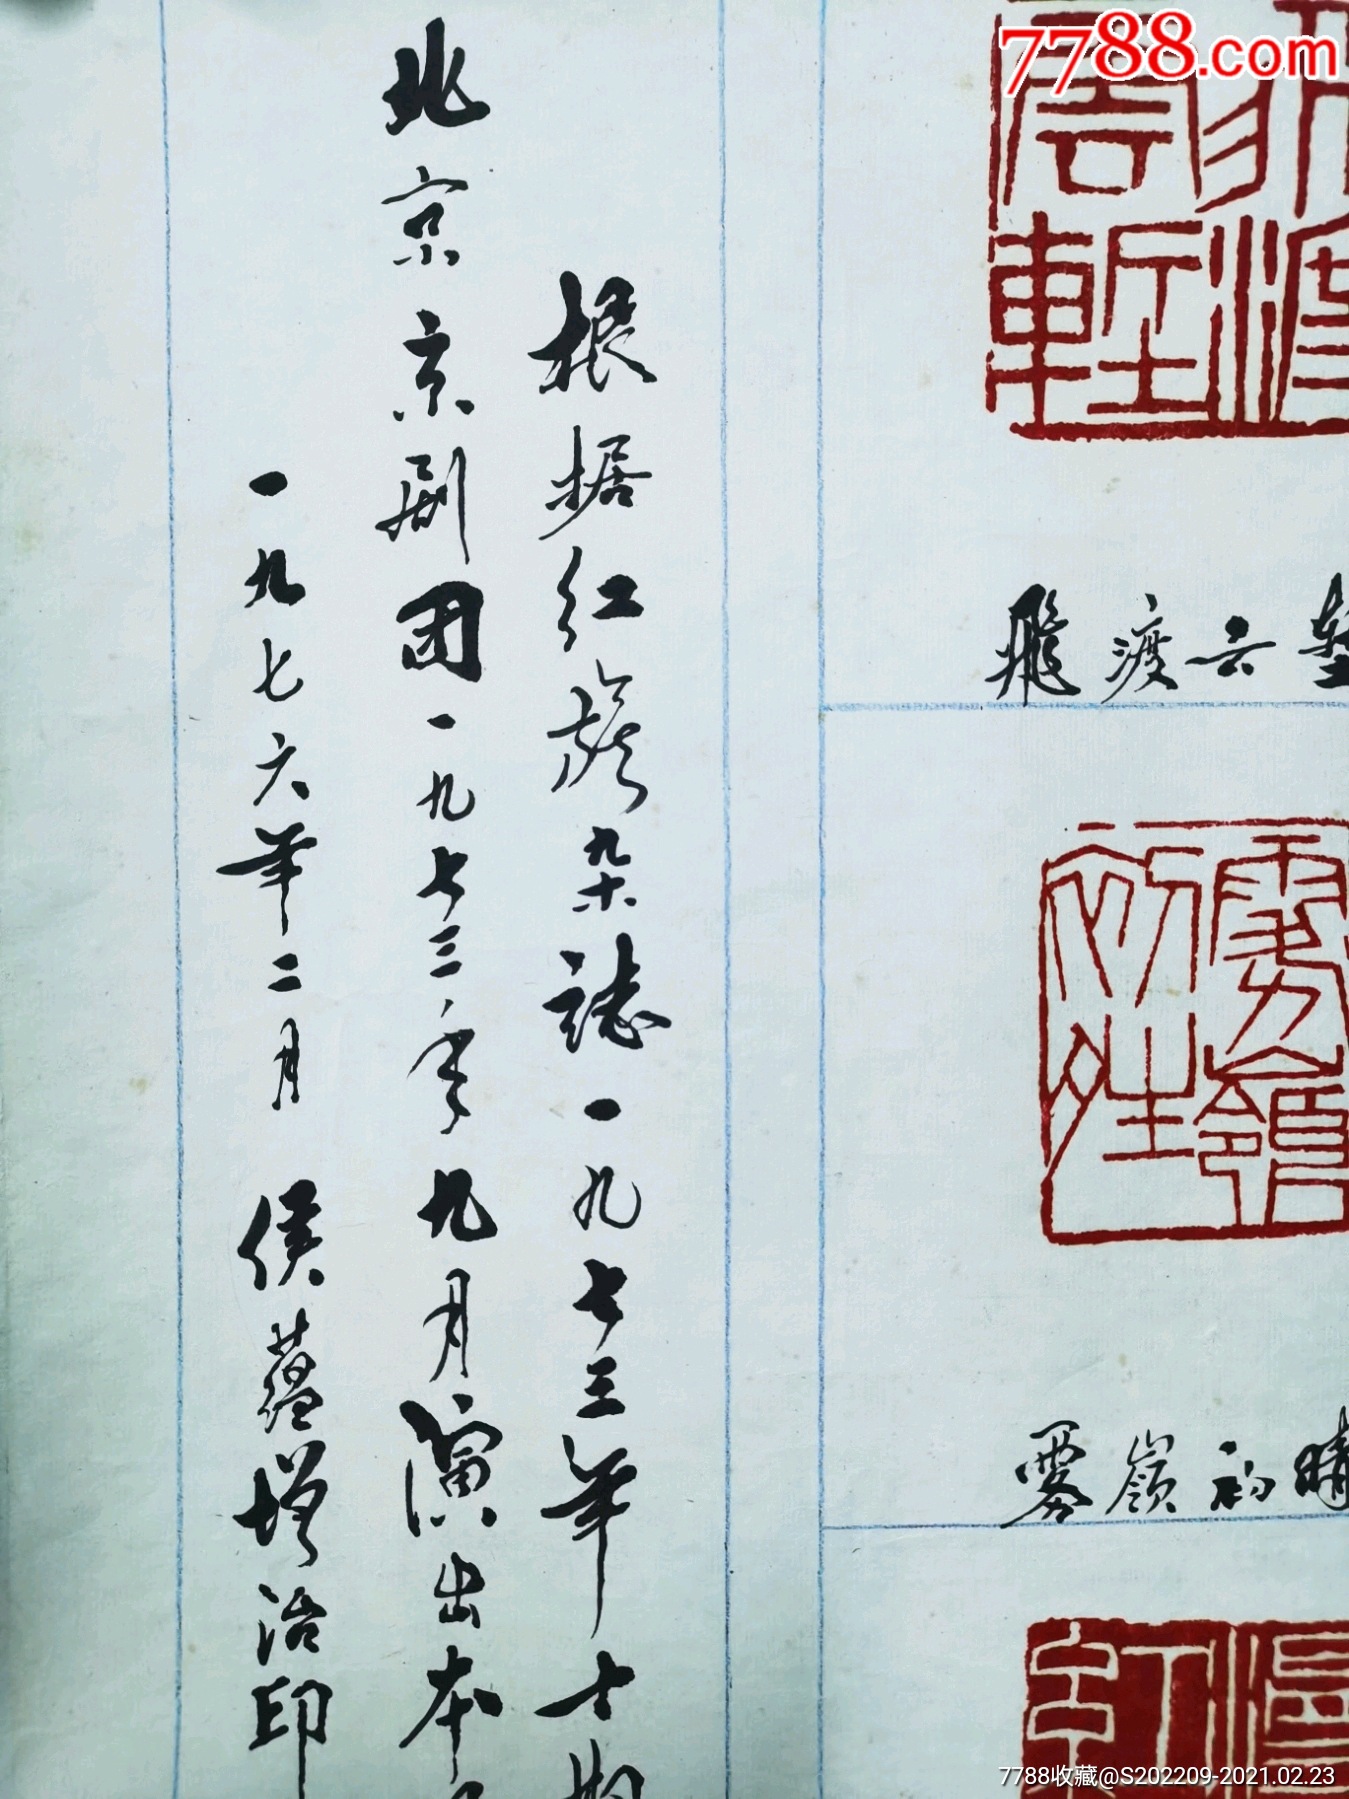 7788.com
飛渡云塹
霧嶺初晴
根据红旗杂誌一九七三年十期
北京京剧团一九七三年九月演出本
一九七六年二月 侯蕴增治印
7788收藏@S202209-2021.02.23